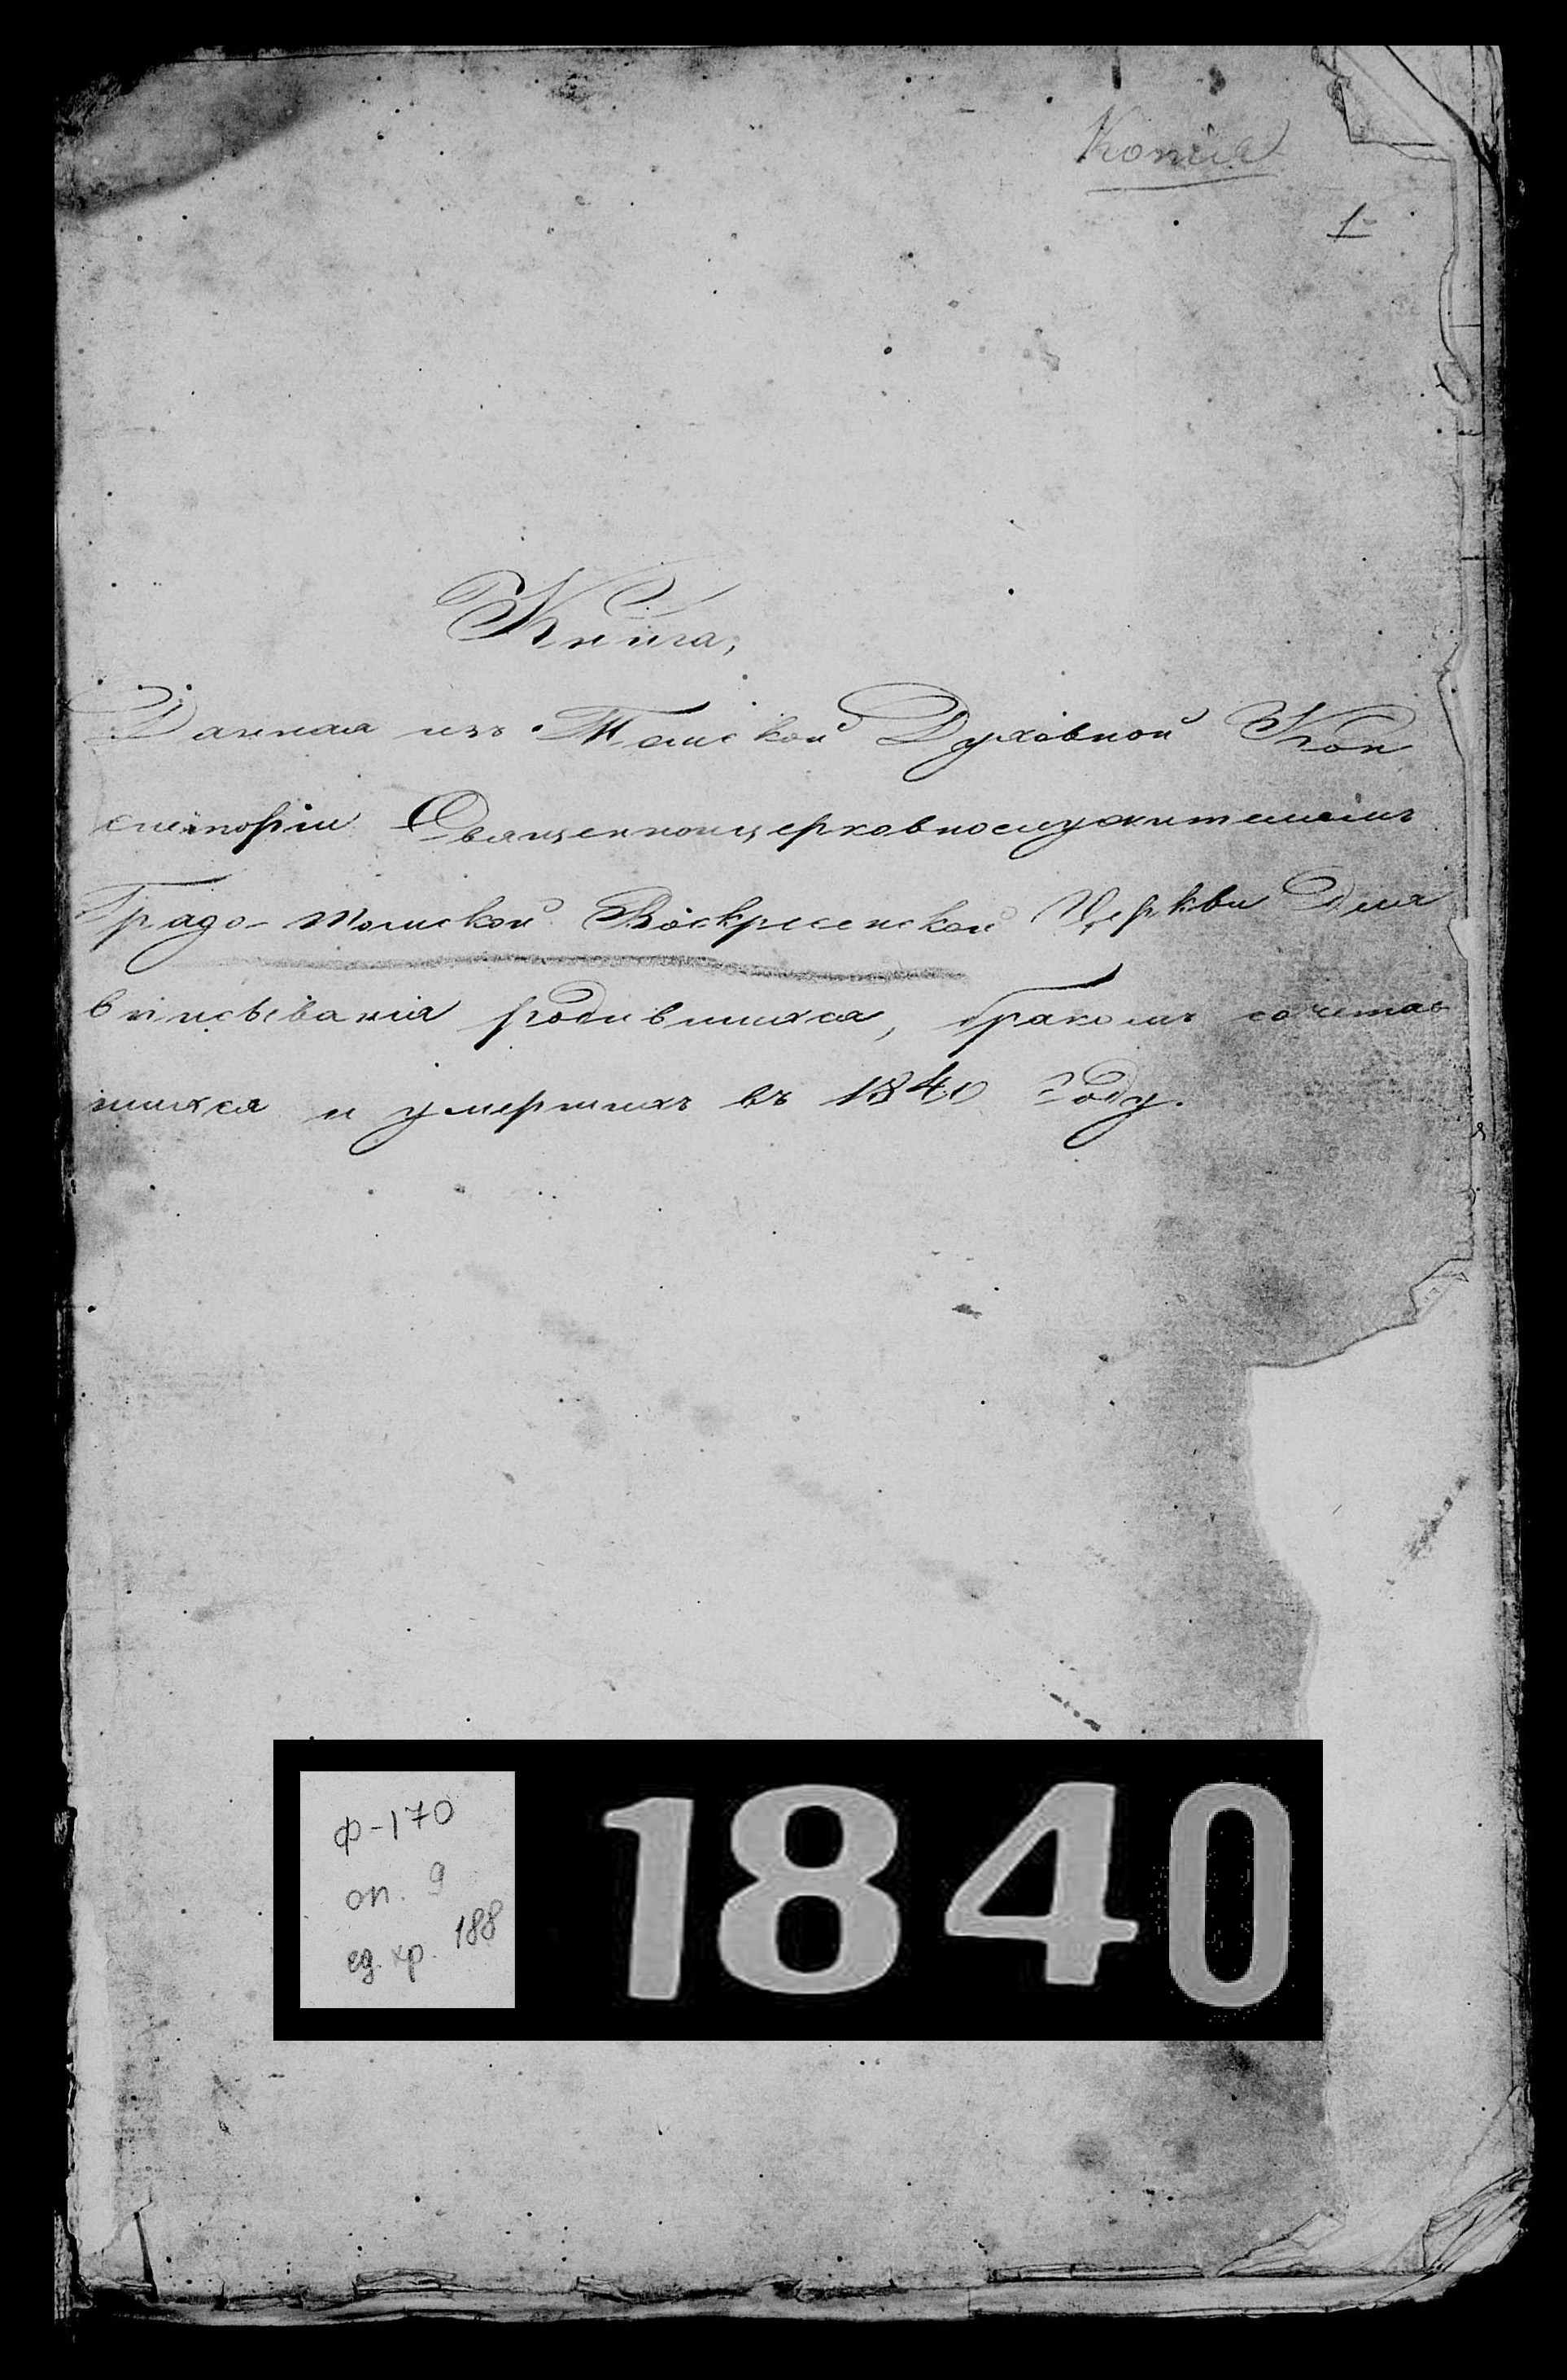 Копія
1
Книга,
Данная изъ Томской Духовной Кон
систоріи Священноцерковнослужителямъ
Градо-Томской Воскресенской Церкви Для
вписыванія родившихся, бракомъ сочетав
шихся и умершихъ въ 1840 Году.
ф-170
оп. 9
ед. хр. 188
1840